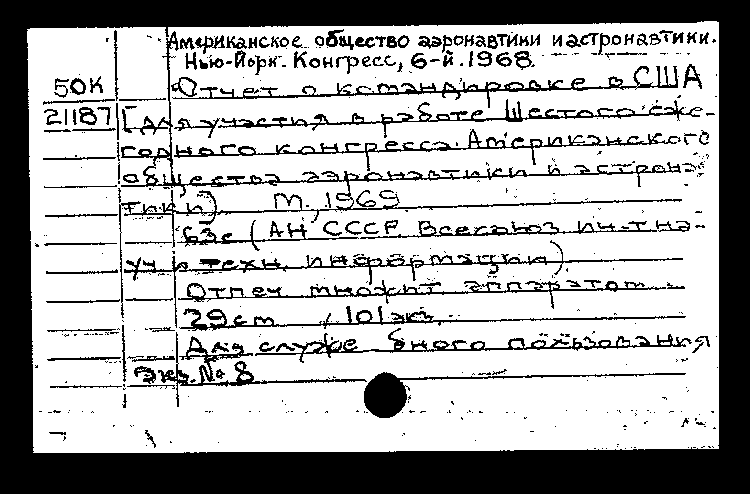 Американское общество аэронавтики и астронавтики.
Нью-Йорк. Конгресс, 6-й. 1968.
50К Отчет о командировке в США
21187 [для участия в работе Шестого еже-
годного конгресса Американского
общества аэронавтики и астрона-
тики]. М., 1969
63с (АН СССР. Всесоюз. ин-т на-
уч и техн. информации).
Отпеч множит аппаратом
29 см 101 экз.
Для служебного пользования
Экз. № 8